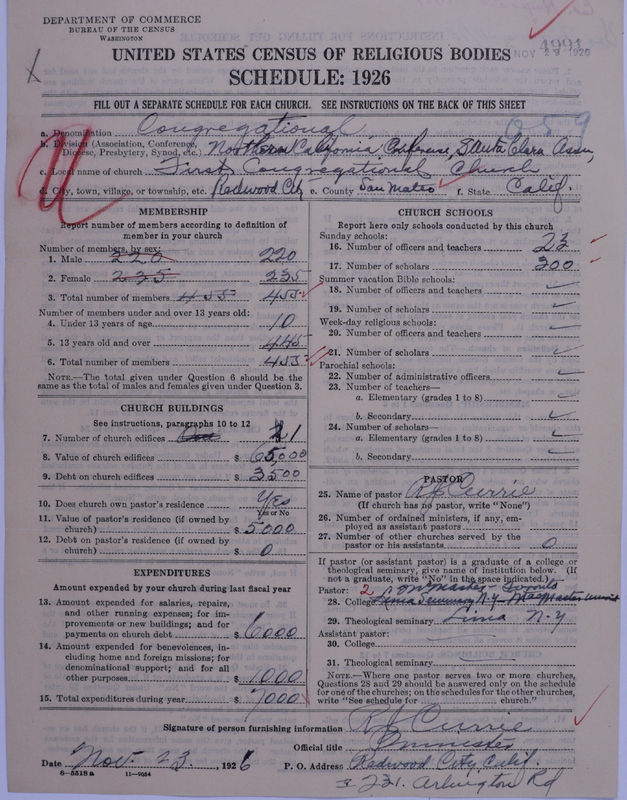 DEPARTMENT OF COMMERCE
BUREAU OF THE CENSUS
WASHINGTON
4991
NOV 29 1926
UNITED STATES CENSUS OF RELIGIOUS BODIES
SCHEDULE: 1926
FILL OUT A SEPARATE SCHEDULE FOR EACH CHURCH. SEE INSTRUCTIONS ON THE BACK OF THIS SHEET
a. Denomination Congregational
b. Division (Association, Conference, Diocese, Presbytery, Synod, etc.) Northern California Conference, Santa Clara Assn,
c. Local name of church First Congregational Church
d. City, town, village, or township, etc. Redwood City e. County San Mateo f. State Calif.
MEMBERSHIP
Report number of members according to definition of
member in your church
Number of members, by sex:
1. Male 220 220
2. Female 235 235
3. Total number of members 455 455
Number of members under and over 13 years old:
4. Under 13 years of age 10
5. 13 years old and over 445
6. Total number of members 455
NOTE.—The total given under Question 6 should be the
same as the total of males and females given under Question 3.
CHURCH BUILDINGS
See instructions, paragraphs 10 to 12
7. Number of church edifices One 1
8. Value of church edifices $ 65,000
9. Debt on church edifices $ 3500
10. Does church own pastor's residence? Yes
Yes or No
11. Value of pastor's residence (if owned by
church) $ 5000
12. Debt on pastor's residence (if owned by
church) $ 0
EXPENDITURES
Amount expended by your church during last fiscal year
13. Amount expended for salaries, repairs,
and other running expenses; for im-
provements or new buildings; and for
payments on church debt $ 6000
14. Amount expended for benevolences, in-
cluding home and foreign missions; for
denominational support; and for all
other purposes $ 1000
15. Total expenditures during year $ 7000
CHURCH SCHOOLS
Report here only schools conducted by this church
Sunday schools:
16. Number of officers and teachers 23
17. Number of scholars 300
Summer vacation Bible schools:
18. Number of officers and teachers
19. Number of scholars
Week-day religious schools:
20. Number of officers and teachers
21. Number of scholars
Parochial schools:
22. Number of administrative officers
23. Number of teachers—
a. Elementary (grades 1 to 8)
b. Secondary
24. Number of scholars—
a. Elementary (grades 1 to 8)
b. Secondary
PASTOR
25. Name of pastor R J Currie
(If church has no pastor, write "None")
26. Number of ordained ministers, if any, em-
ployed as assistant pastors
27. Number of other churches served by the
pastor or his assistants 0
If pastor (or assistant pastor) is a graduate of a college or
theological seminary, give name of institution below. (If
not a graduate, write "No" in the space indicated.)
Pastor: 2
28. College
29. Theological seminary N-Y
Assistant pastor:
30. College
31. Theological seminary
NOTE.—Where one pastor serves two or more churches,
Questions 28 and 29 should be answered only on the schedule
for one of the churches; on the schedules for the other churches,
write "See schedule for church."
Signature of person furnishing information R J Currie
Official title minister
Date Nov. 23, 1926 P. O. Address Redwood City Calif.
8—5518a 11—9554
221. Arlington Rd